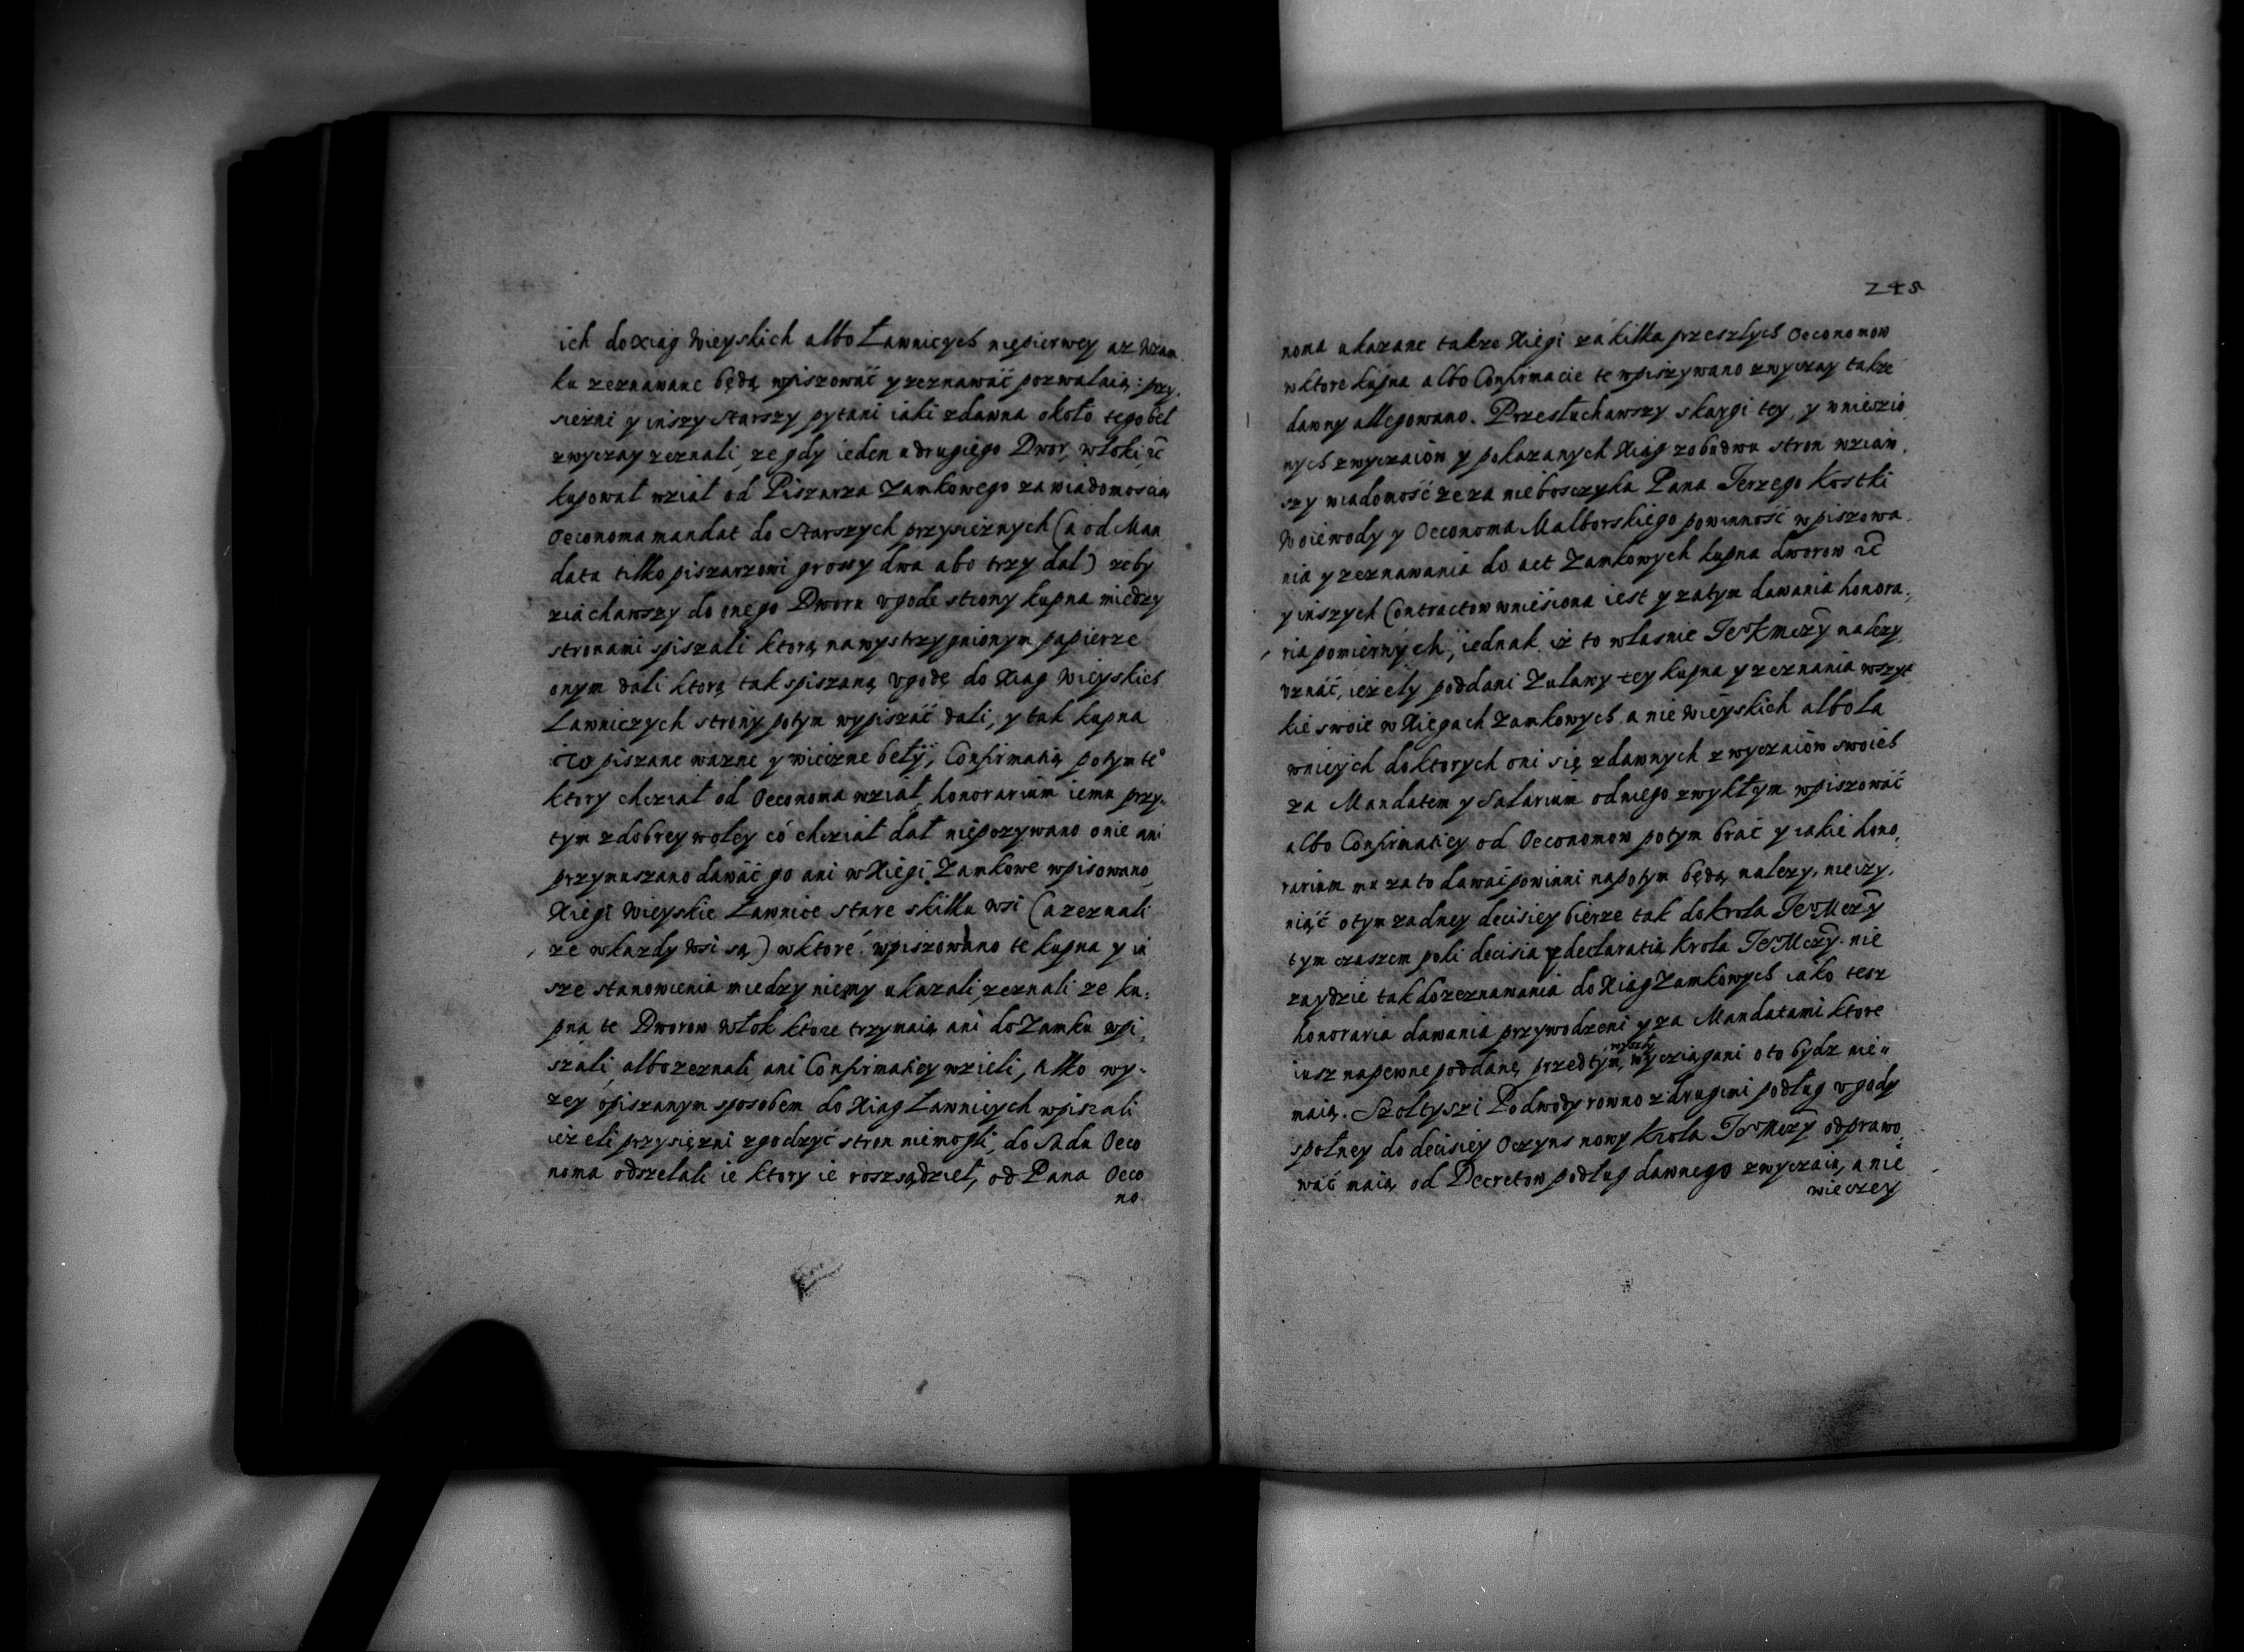 ich do Xiąg Wieyskich albo Ławniczych niepierwey az Wzam
ku zeznawane będą wpiszować y zeznawać pozwalaią: przy,
siezni y inszy starszy pytani iaki zdawna około tego beł
zwyczay zeznali, ze gdy ieden u drugiego Dwor, włoki, &c
kupował wział od Piszarza Zamkowego za wiadomoscią
Oeconoma mandat do Starszych przysieznych (a od Man
data tilko piszarzowi grossy dwa abo trzy dał) zeby
ziachawszy do onego Dworu vgode strony kupna miedzy
stronami spiszali ktorą na wystrzygnionym papierze
onym dali ktorą tak spiszaną vgodę do Xiag Wieyskich
Ławniczych strony potym wypiszać dali, y tak kupna
piszane wazne y wieczne beły, Confirmatią potym te
ktory chcział od Oeconoma wział, honorarium iemu przy,
tym z dobrey woley co chcział dał niepozywano onie ani
przymuszano dawać go ani w Xiegi Zamkowe wpisowano
Xiegi Wieyskie Ławnice stare z kilku wsi (a zeznali
ze wkazdy wsi są) w ktoré wpiszowano te kupna y in
sze stanowienia miedzy niemy ukazali, zeznali ze ku,
pna te Dworow Włok ktore trzymaią ani do Zamku wpi,
szali, albo zeznali, ani Confirmatiey wzieli, tilko wy-
zey opiszanym sposobem do Xiag Ławniczych wpiszali
iezeli przysięzni zgodzyć stron niemogli, do Sądu Oeco
noma odszelali ie ktory ie roszsądzieł, od Pana Oeco
no
248
noma ukazane takze Xiegi za kilka przeszłych Oeconomow
w ktore kupna albo Confirmacie te wpiszywano zwyczay takze
dawny allegowano. Przesłuchawszy skargi tey, y wniesio
nych zwyczaiow y pokazanych Xiąg z obudwu stron wziaw,
szy wiadomość ze za niebosczyka Pana Jerzego Kostki
Woiewody y Oeconoma Malborskiego powinność wpiszowa
nia y zeznawania do act Zamkowych kupna dworow &c
y inszych Contractow wniesiona iest y zatym dawania honora,
ria pomiernych, iednak iz to własnie Je K Mczy nalezy
vznać, iezely poddani Zuławy tey kupna y zeznania wszyt
kie swoie w Xięgach Zamkowych a nie Wieyskich albo Ła
wniczych do ktorych oni się z dawnych zwyczaiow swoich
za Mandatem y Salarium od niego zwykłym wpiszować
albo Confirmatiey od Oeconomow potym brać y iakie hono,
rarium mu za to dawać powinni napotym będą nalezy, nieczy,
niąć o tym zadney decisiey bierze tak do krola Je Mczy
tym czaszem poki decisia y declaratia krola Je Mczy nie
zaydzie tak do zeznawania do Xiąg Zamkowych iako tesz
honoraria dawania przywodzeni y za Mandatami ktore
wyszły
iusz napewne poddane przedtym, wycziągani o to bydz nie
maią. Szołtyszi Podwody rowno z drugimi podług vgody
społney do decisiey Oczyns nowy Krola Je Mczy odprawo,
wać maią, od Decretow podług dawnego zwyczaiu, a nie
wieczey